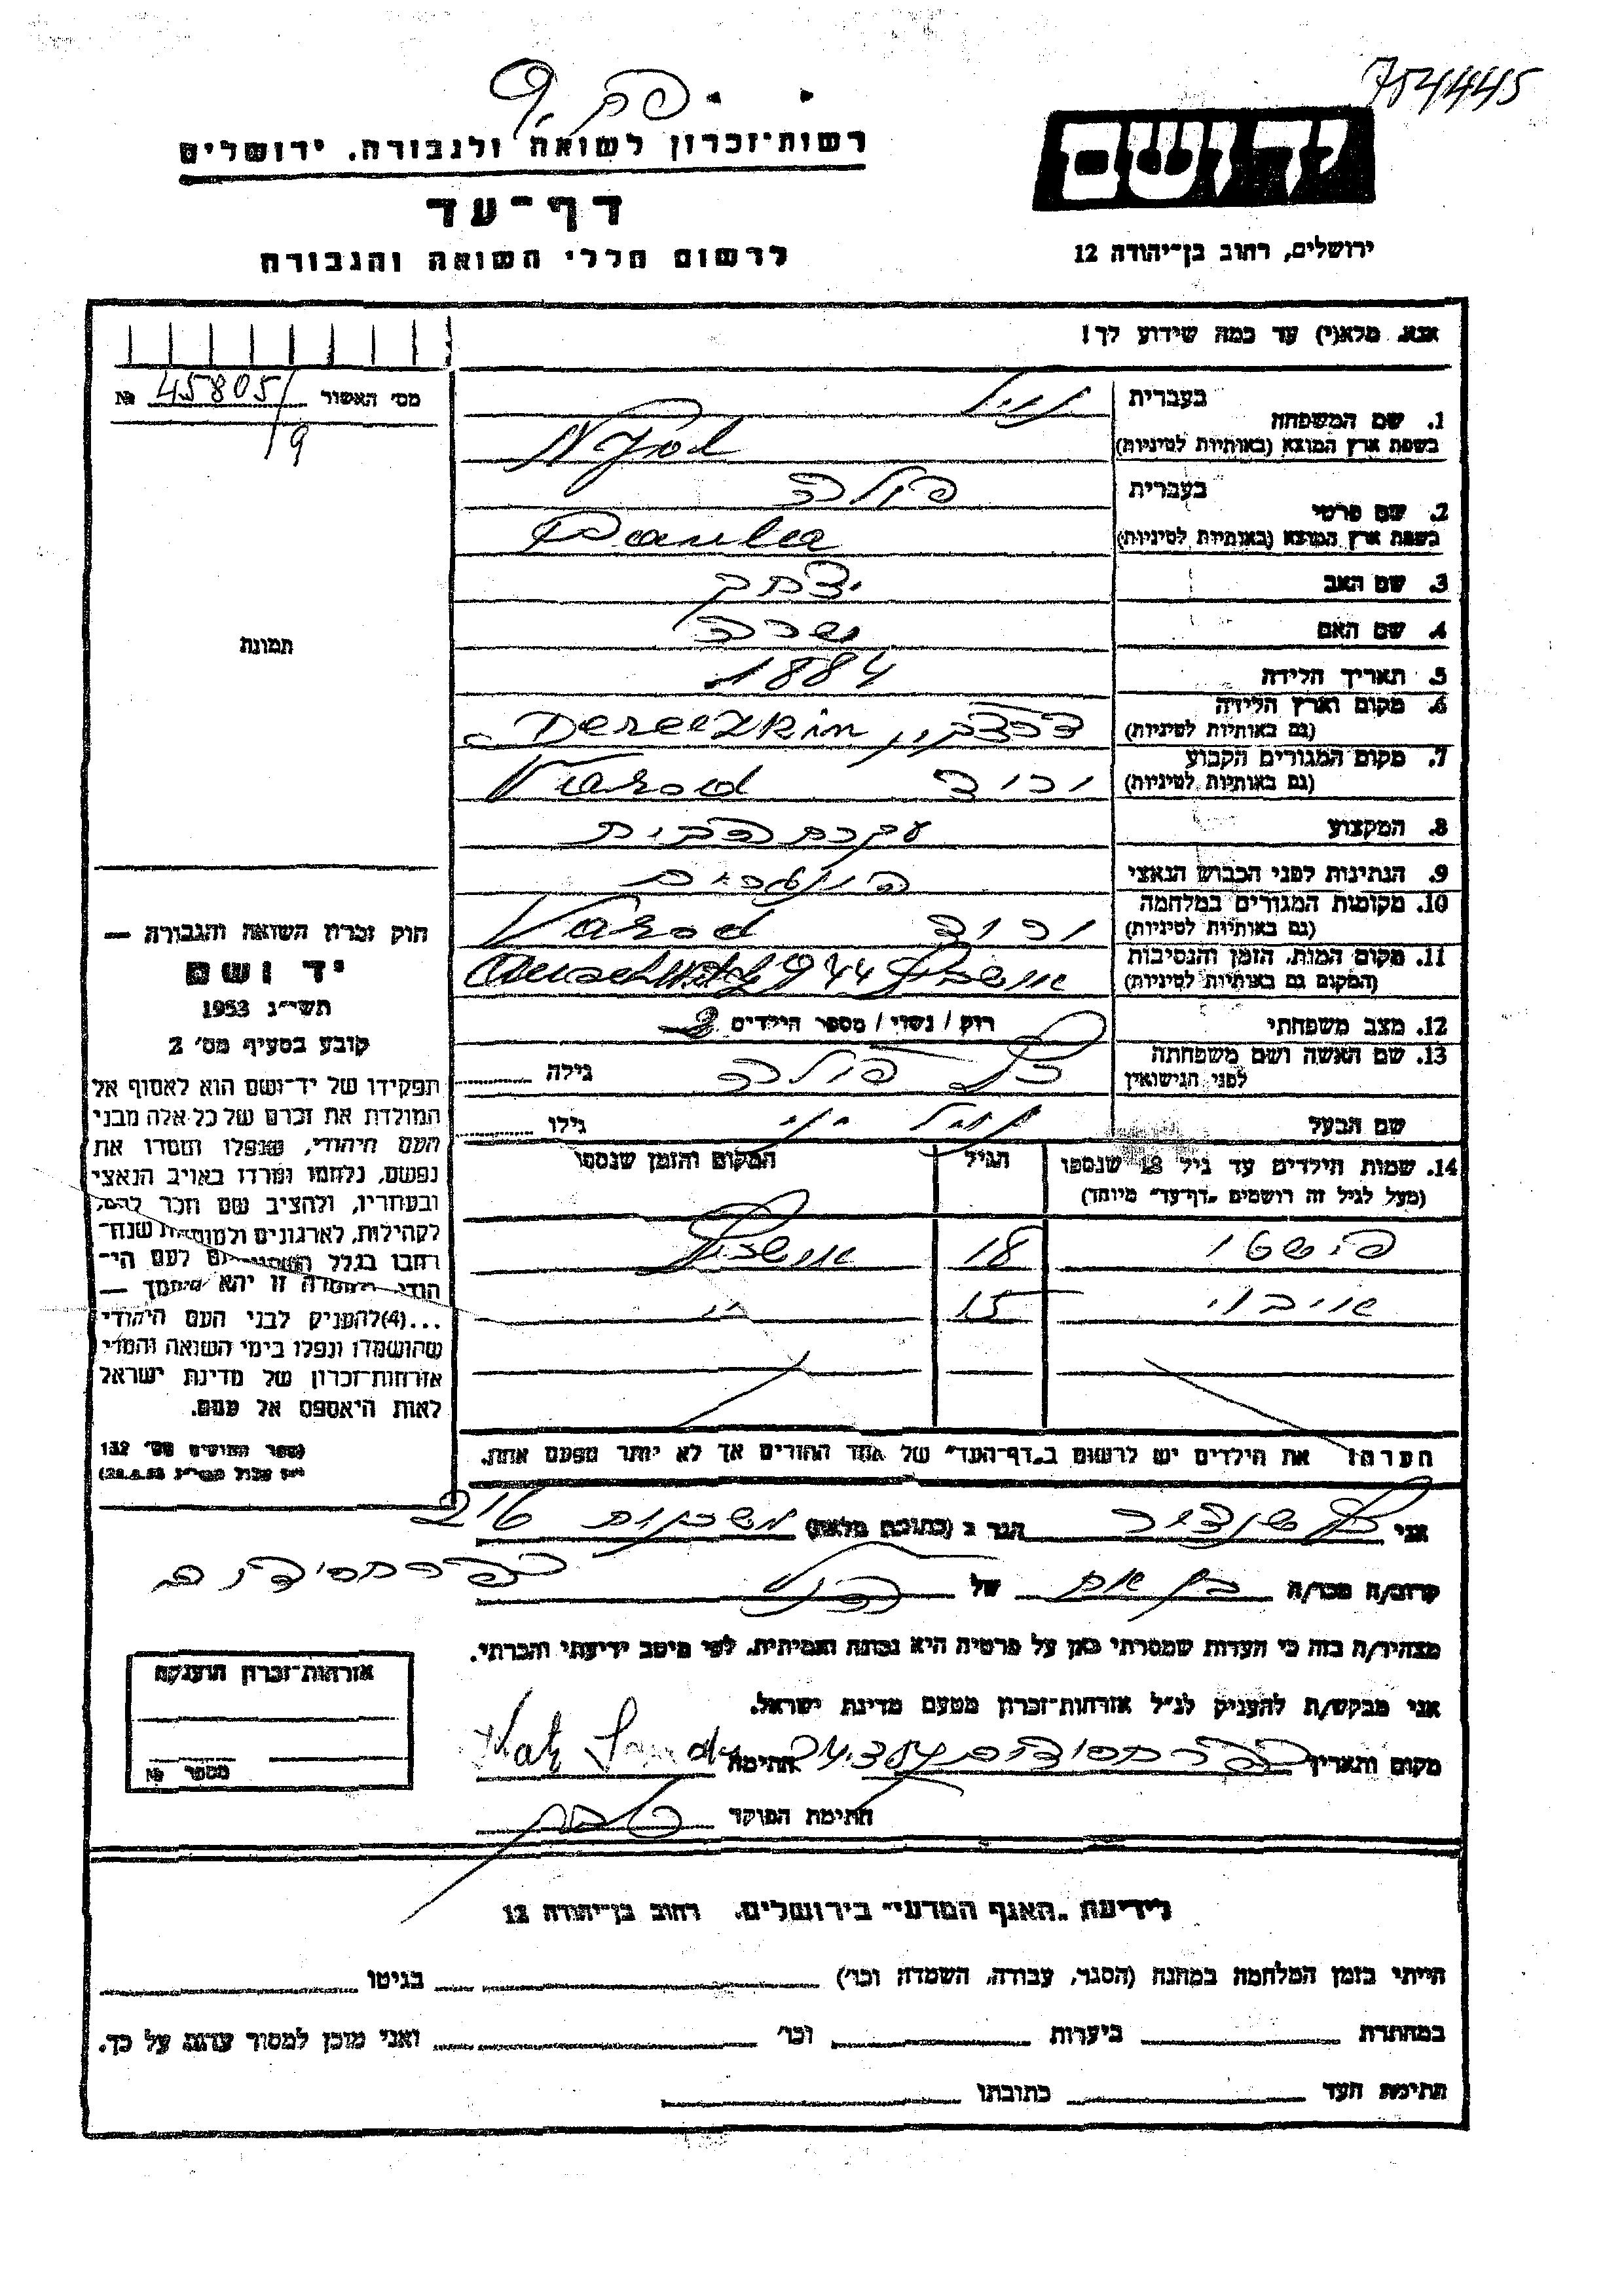 754445
רשות־זכרון לשואה ולגבורה, ירושלים
יד ושם
דף־עד
לרשום חללי השואה והגבורה
ירושלים, רחוב בן־יהודה 12
אנא, מלא(י) עד כמה שידוע לך!
מס׳ האשור 45805/ №
19
1. שם המשפחה
בעברית
בשפת ארץ המוצא (באותיות לטיניות)
2. שם פרטי
בעברית פולה
בשפת ארץ המוצא (באותיות לטיניות) Paula
3. שם האב יצחק
4. שם האם שרה
5. תאריך הלידה 1884
6. מקום וארץ הלידה
(גם באותיות לטיניות)
7. מקום המגורים הקבוע
(גם באותיות לטיניות) Varod
8. המקצוע עקרת הבית
9. הנתינות לפני הכבוש הנאצי
10. מקומות המגורים במלחמה
(גם באותיות לטיניות) Varod
11. מקום המות, הזמן והנסיבות
(המקום גם באותיות לטיניות) 1944
12. מצב משפחתי רוק / נשוי / מספר הילדים
13. שם האשה ושם משפחתה
לפני הנישואין כץ פולה גילה
שם הבעל גילו
14. שמות הילדים עד גיל 18 שנספו הגיל המקום והזמן שנספו
(מעל לגיל זה רושמים „דף־עד״ מיוחד)
18
15 ״
הערה: את הילדים יש לרשום ב„דף־העד״ של אחד ההורים אך לא יותר מפעם אחת.
תמונה
חוק זכרון השואה והגבורה —
יד ושם
תשי״ג 1953
קובע בסעיף מס׳ 2
תפקידו של יד־ושם הוא לאסוף אל
המולדת את זכרם של כל אלה מבני
העם היהודי, שנפלו ומסרו את
נפשם, נלחמו ומרדו באויב הנאצי
ובעוזריו, ולהציב שם וזכר להם,
לקהילות, לארגונים ולמוסדות שנח־
רבו בגלל השתייכותם לעם הי־
הודי, ולמטרה זו יהא מוסמך —
...(4) להעניק לבני העם היהודי
שהושמדו ונפלו בימי השואה והמרי
אזרחות־זכרון של מדינת ישראל
לאות היאספם אל עמם.
(ספר החוקים מס׳ 132
אני כץ הגר ב (כתובת מלאה) משכנות 216
כפר חסידים
קרוב/ה מכר/ה בן אח של
מצהיר/ה בזה כי העדות שמסרתי כאן על פרטיה היא נכונה ואמיתית, לפי מיטב ידיעתי והכרתי.
אני מבקש/ת להעניק לנ״ל אזרחות־זכרון מטעם מדינת ישראל.
מקום ותאריך כפר חסידים חתימה Katz
חתימת הפוקד
אזרחות־זכרון הוענקה
מספר №
לידיעת „האגף המדעי״ בירושלים, רחוב בן־יהודה 12
הייתי בזמן המלחמה במחנה (הסגר, עבודה, השמדה וכו׳) בגיטו
במחתרת ביערות וכו׳ ואני מוכן למסור עדות על כך.
חתימת העד כתובתו